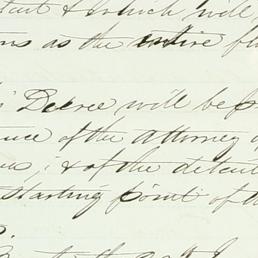 & which will
as the entire
Decree will be
of the attorney
; & of the detail
starting point of